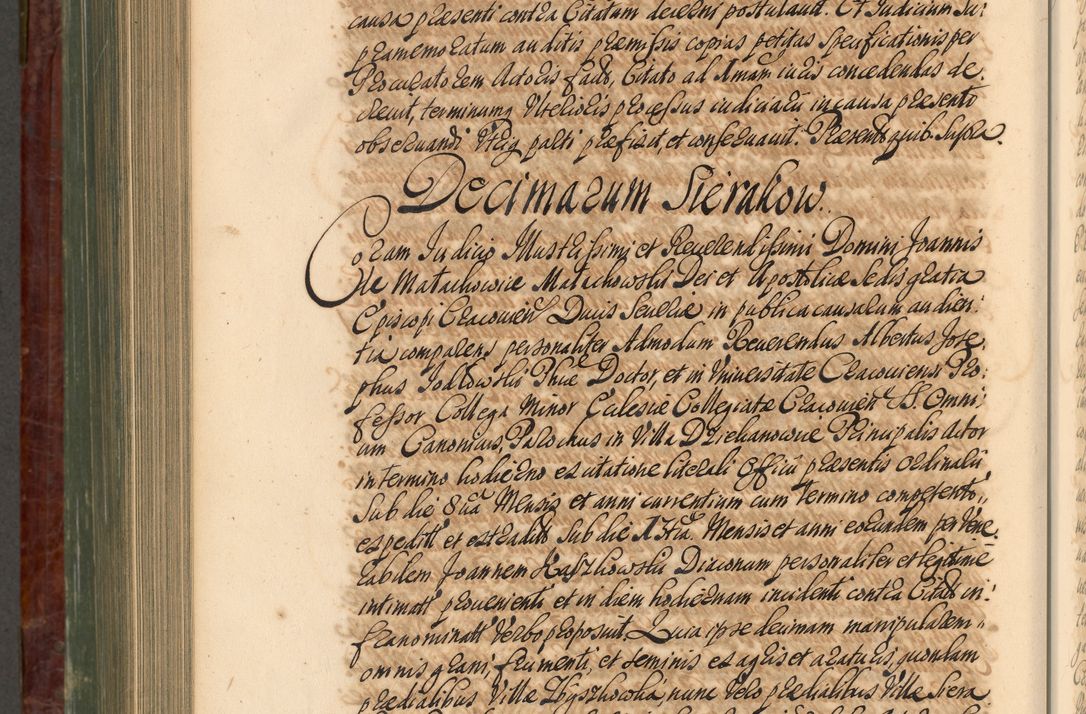 causa præsenti contra Citatum decerni postulavit. Et Judicium su:
præmemoratum auditis præmissis copias petitas specificationis per
Procuratorem Actoris fact, Citato ad Amam iuris concedendas de:
crevit, terminumq Ulterioris processus iudiciarii in causa præsenti
observandi Utriq parti præfixit, et conservavit. Præsentib quib supra.
Decimarum Sierakow.
Coram Judicio Illustrissimi et Reverendissimi Domini Joannis
de Małachowice Małachowski Dei et Apostolicæ Sedis gratia
Episcopi Cracovien Ducis Severiæ in publica causarum audien:
tia comparens personaliter Admodum Reverendus Albertus Jose
phus Jodłowski Phiæ Doctor, et in Universitate Cracoviensi Pro:
fessor Collega Minor Ecclesiæ Collegiatæ Cracovien SS. Omni
um Canonicus, Parochus in Villa Dziekanowice Principalis Actor
in termino hodierno ex citatione literali Officii præsentis ordinarii
sub die 8va Mensis et anni currentium cum termino competenti,,
expedit et extradit sub die 13tia Mensis et anni eorundem per Vene
rabilem Joannem Kaszkowski Diaconum personaliter et legitime
intimatt provenienti et in diem hodiernam incidenti contra Citat in:
franominatt Verbo proposuit. Quia ipse decimam manipularem,,
omnis grani, frumenti, et seminis ex agris et araturis, quondam
prædialibus Villæ Zyszkowka, nunc Vero prædialibus Villæ Siera